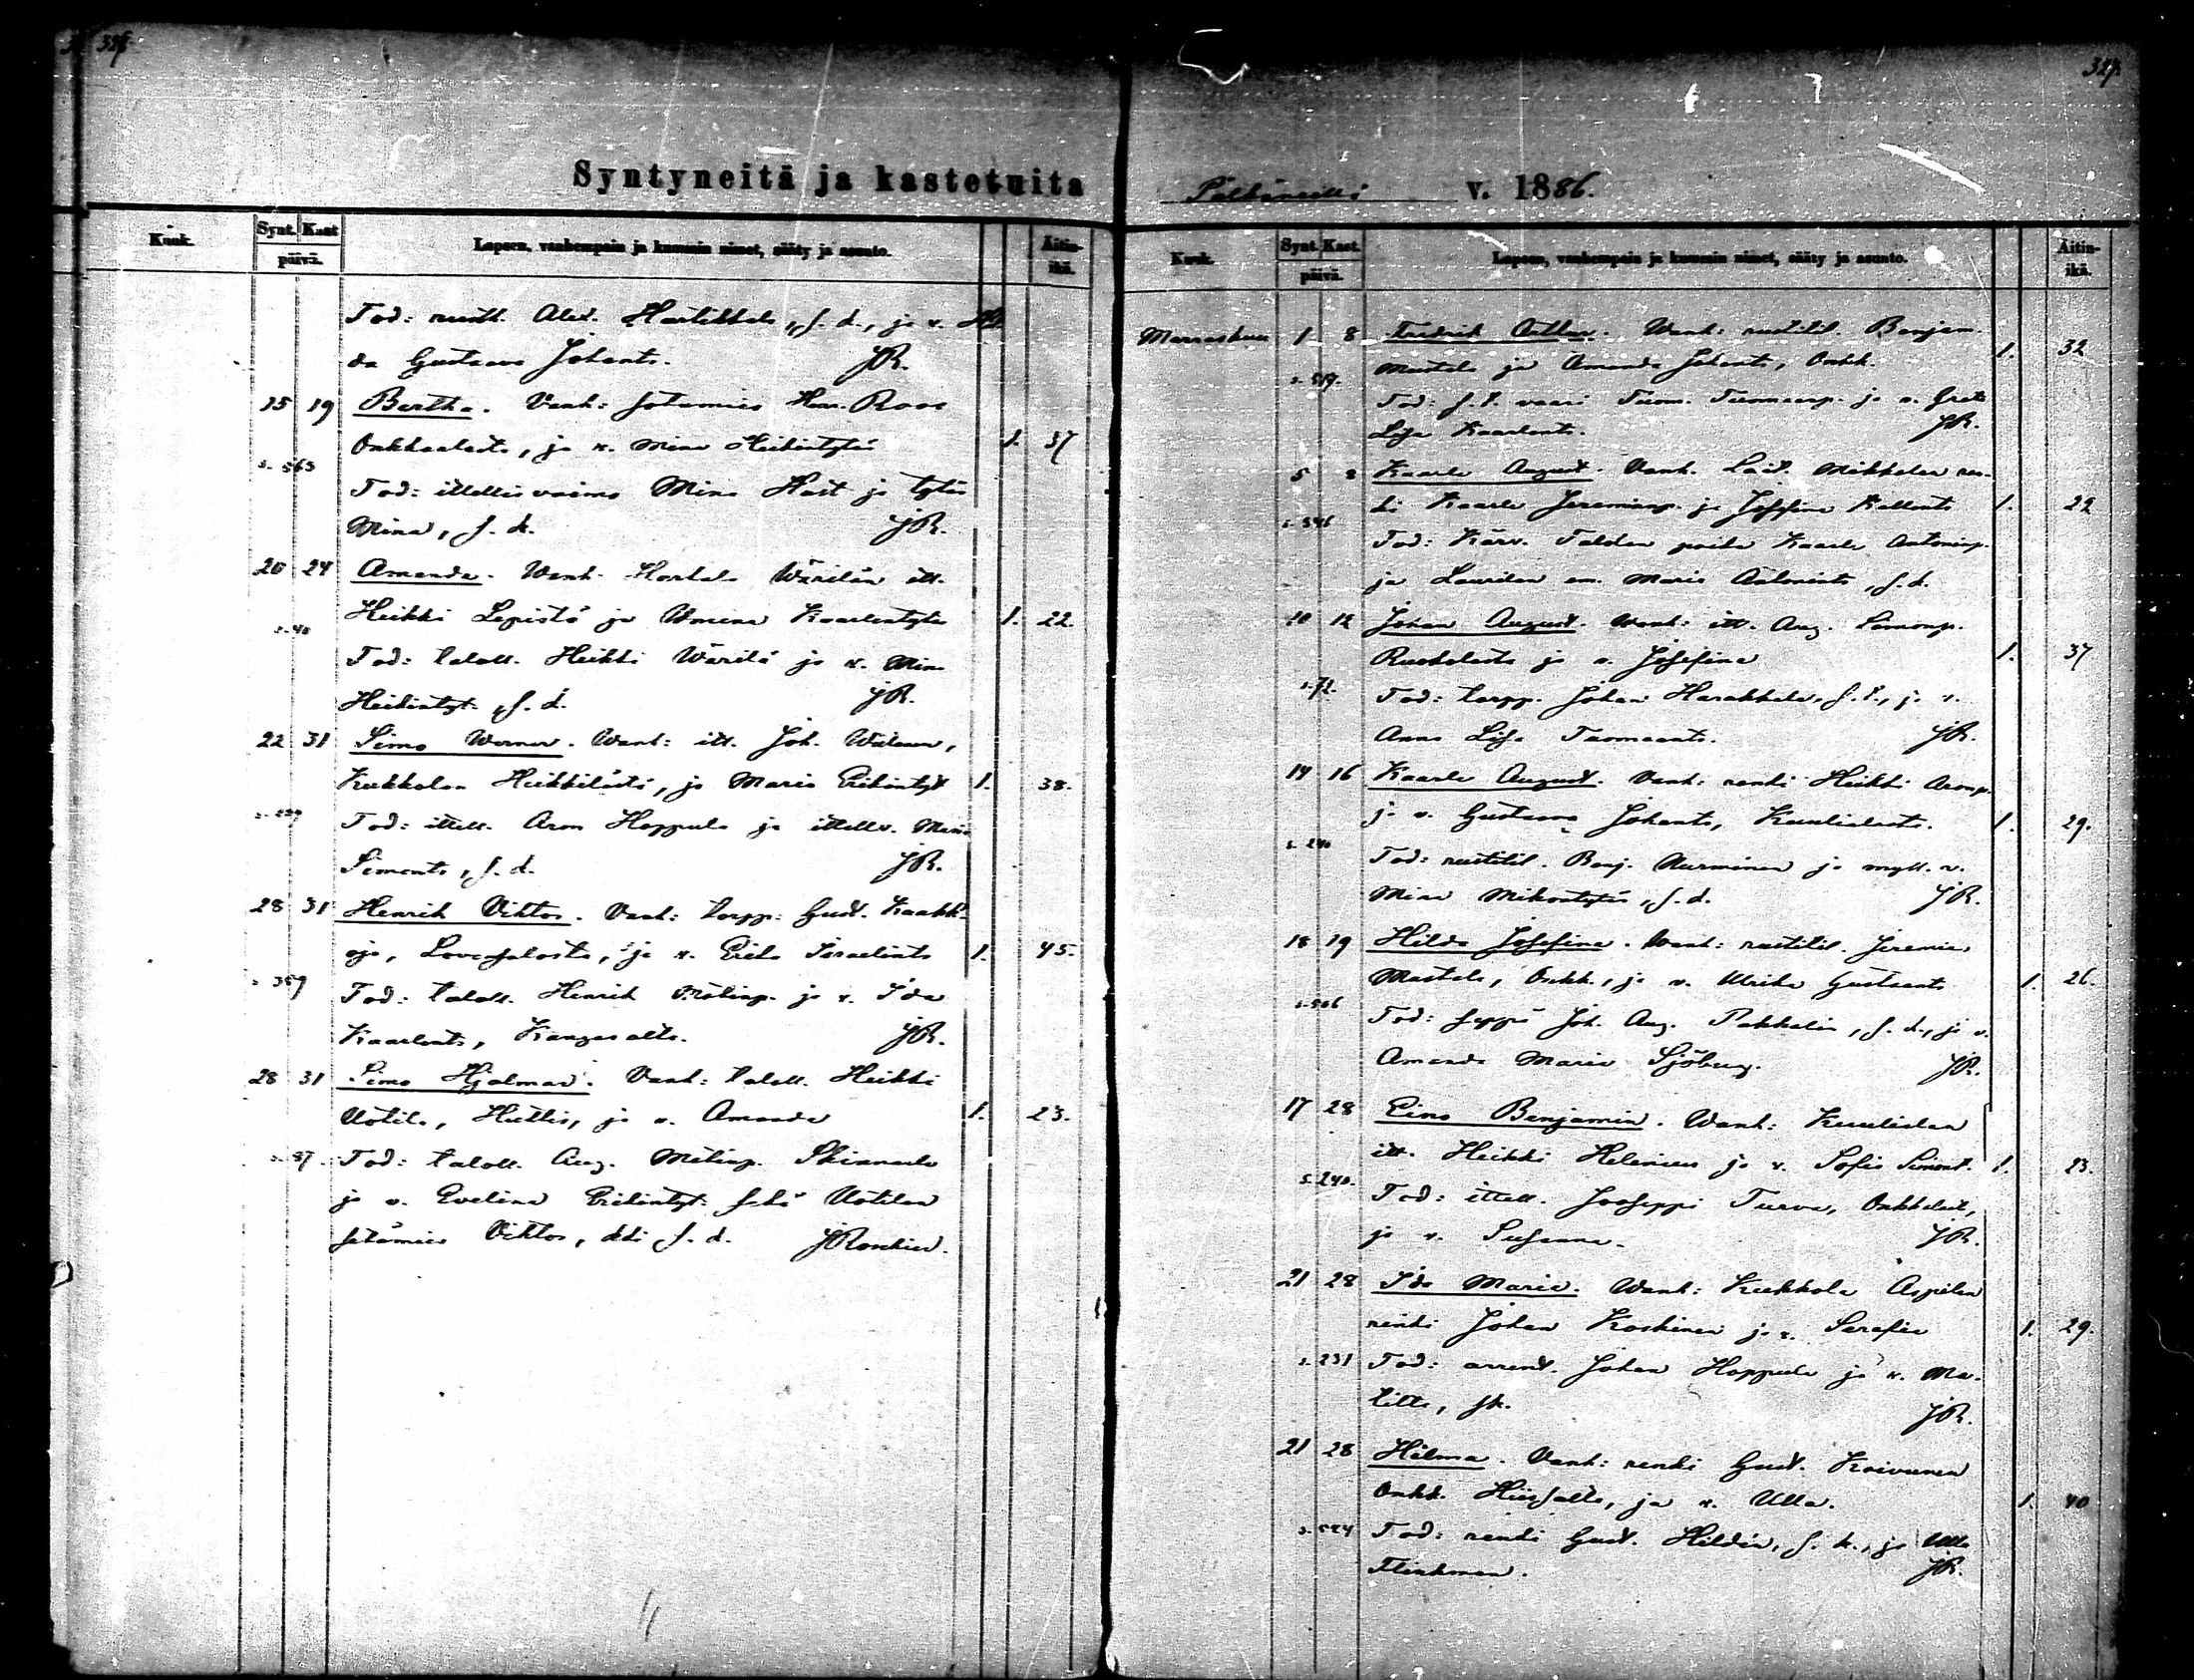 326.
Syntyneitä ja kastetuita
Kuuk. Synt. Kast. päivä. Lapsen, vanhempain ja kummin nimet, sääty ja asunto. Äitin-ikä.
Tod: rustt. Alex. Hartikkala, s. k., ja v. Hil
da Gustaava Johant. JR.
15 19 Bertha. Vanh: sotamies Hen. Roos
Onkkaalasta, ja v. Mina Heikintytär 1. 37
s. 563
Tod: itellisvaimo Mina Hast ja tytär
Mina, s. k. JR.
20 24 Amanda. Wanh. Hartala Wärilän itt.
Heikki Lepistö ja Wmena Kaarlentytär 1. 22.
s. 40
Tod: taloll. Heikki Wärilä ja v. Mina
Heikintyt., s. d. JR.
22 31 Simo Werner. Wanh: itt. Joh.
Kukkolan Heikkilästä, ja Maria Erikintyt 1. 38.
Tod: ittell. Aron Hoppula ja ittellv. Maria
Simonts, s. d. JR.
28 31 Henrik Viktor. Vanh: torpp: Gust. Kaakk-
oja, Lovensalosta, ja v. Eeta Israelints 1. 45.
s. 359
Tod: taloll. Henrik ja v. Ida
Kaarlents, Kangasalta. JR.
28 31 Simo Hjalmar. Vanh: taloll. Heikki
Uotila, Huttis, ja v. Amanda 1. 23.
s. 87.
Tod: taloll. Aug. Matinp. Skinnula
ja v. Evelina Erikintyt. sekä Uotilan
sotamies Viktor, kki s. d. JRoschier.
327.
Pälkäneellä v. 1886.
Kuuk. Synt. Kast. päivä. Lapsen, vanhempain ja kummin nimet, sääty ja asunto. Äitin-ikä.
Marraskuu 1 8 Fredrik Arthur. Wanh: rustitil. Benjam.
Mustala ja Amanda Johants, Onkk. 1. 32
Tod: s. t. vaari Tuom. Tuomaanp. ja v. Greta
Lisa Kaarlents. JR.
5 8 Kaarle August. Vanh. Lait. Mikkolan ren-
ki Kaarle Jeremianp. ja Josefina Kallents 1. 22
s. 546
Tod: Kärv. Taldan poika Kaarle Antoninp.
ja Laurilan em. Maria Antonints, s. d.
10 12 Johan August. Wanh: itt. Aug. Simonp.
Ruokolasta ja v. Josefina 1. 37
s. 72.
Tod: torpp. Johan Harakkala, s. t., ja v.
Anna Lisa Tuomaants. JR.
14 16 Kaarle August. Vanh: renki Heikki Aronp.
ja v. Gustaava Johants, Kuulialasta. 1. 29.
s. 240
Tod: rustitil. Benj. Nurminen ja myll. v.
Mina Mikontytär, s. d. JR.
18 19 Hilda Josefina. Wanh: rustitil. Jeremias
Mustala, Onkk., ja v. Ulrika Gustaants 1. 26.
s. 506
Tod: seppä Joh. Aug. Pakkalin, s. k., ja v.
Amanda Maria Sjöberg. JR.
17 28 Eino Benjamin. Wanh: Kuulialan
itt. Heikki Helenius ja v. Sofia Simont. 1. 23.
s. 240.
Tod: ittell. Jooseppi Turva, Onkkalast,
ja v. Susanna. JR.
21 28 Ida Maria. Wanh: Kukkola Aspilan
renki Johan Koskinen ja v. Serafia 1. 29.
s. 231
Tod: arrent. Johan Hoppula ja v. Ma-
tilta, sk. JR.
21 28 Hilma. Vanh: renki Gust. Koivunen
Onkk. Hiirsalta, ja v. Ulla. 1. 40
s. 524
Tod: renki Gust. Hildén, s. k., ja Ulla
Flinkman. JR.